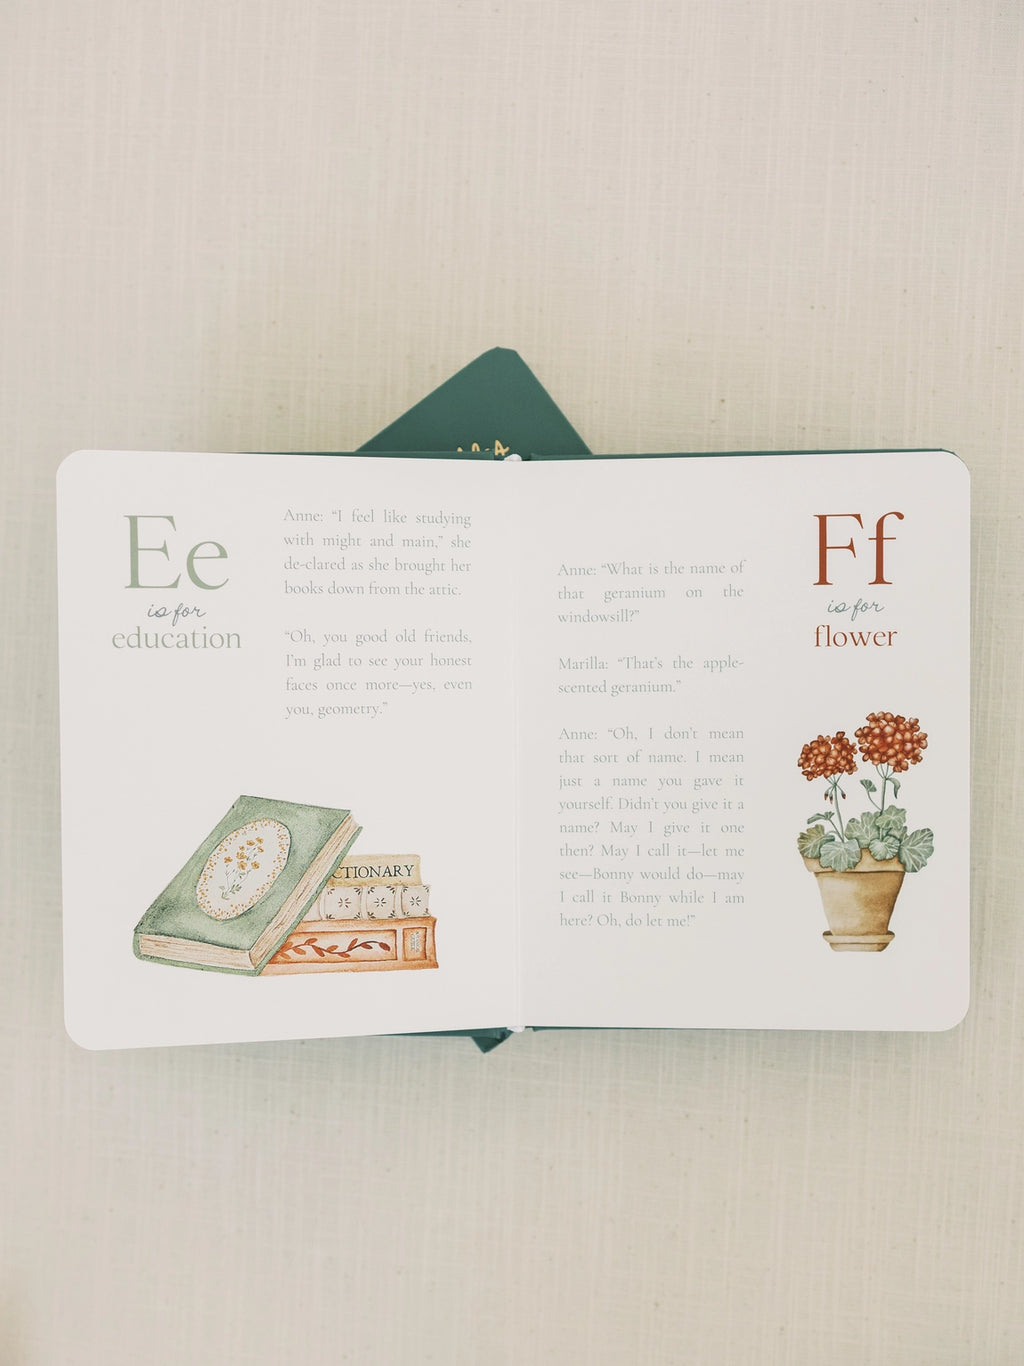 Ee
is for
education
Anne: “I feel like studying
with might and main,” she
de-clared as she brought her
books down from the attic.
“Oh, you good old friends,
I’m glad to see your honest
faces once more—yes, even
you, geometry.”
CTIONARY
Ff
is for
flower
Anne: “What is the name of
that geranium on the
windowsill?”
Marilla: “That’s the apple-
scented geranium.”
Anne: “Oh, I don’t mean
that sort of name. I mean
just a name you gave it
yourself. Didn’t you give it a
name? May I give it one
then? May I call it—let me
see—Bonny would do—may
I call it Bonny while I am
here? Oh, do let me!”